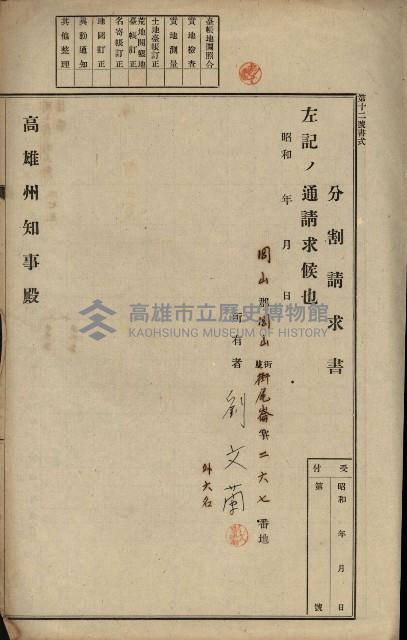 第十二號書式
分割請求書
左記ノ通請求候也
昭和 年 月 日
岡山郡岡山街庄街尾崙字二六七番地
所有者 劉文蘭
外六名
高雄州知事殿
受付
昭和 年 月 日
第 號
臺帳地圖照合
實地檢查
實地測量
土地臺帳訂正
荒地開墾地臺帳訂正
名寄帳訂正
地圖訂正
異動通知
其他整理
高雄市立歷史博物館
KAOHSIUNG MUSEUM OF HISTORY